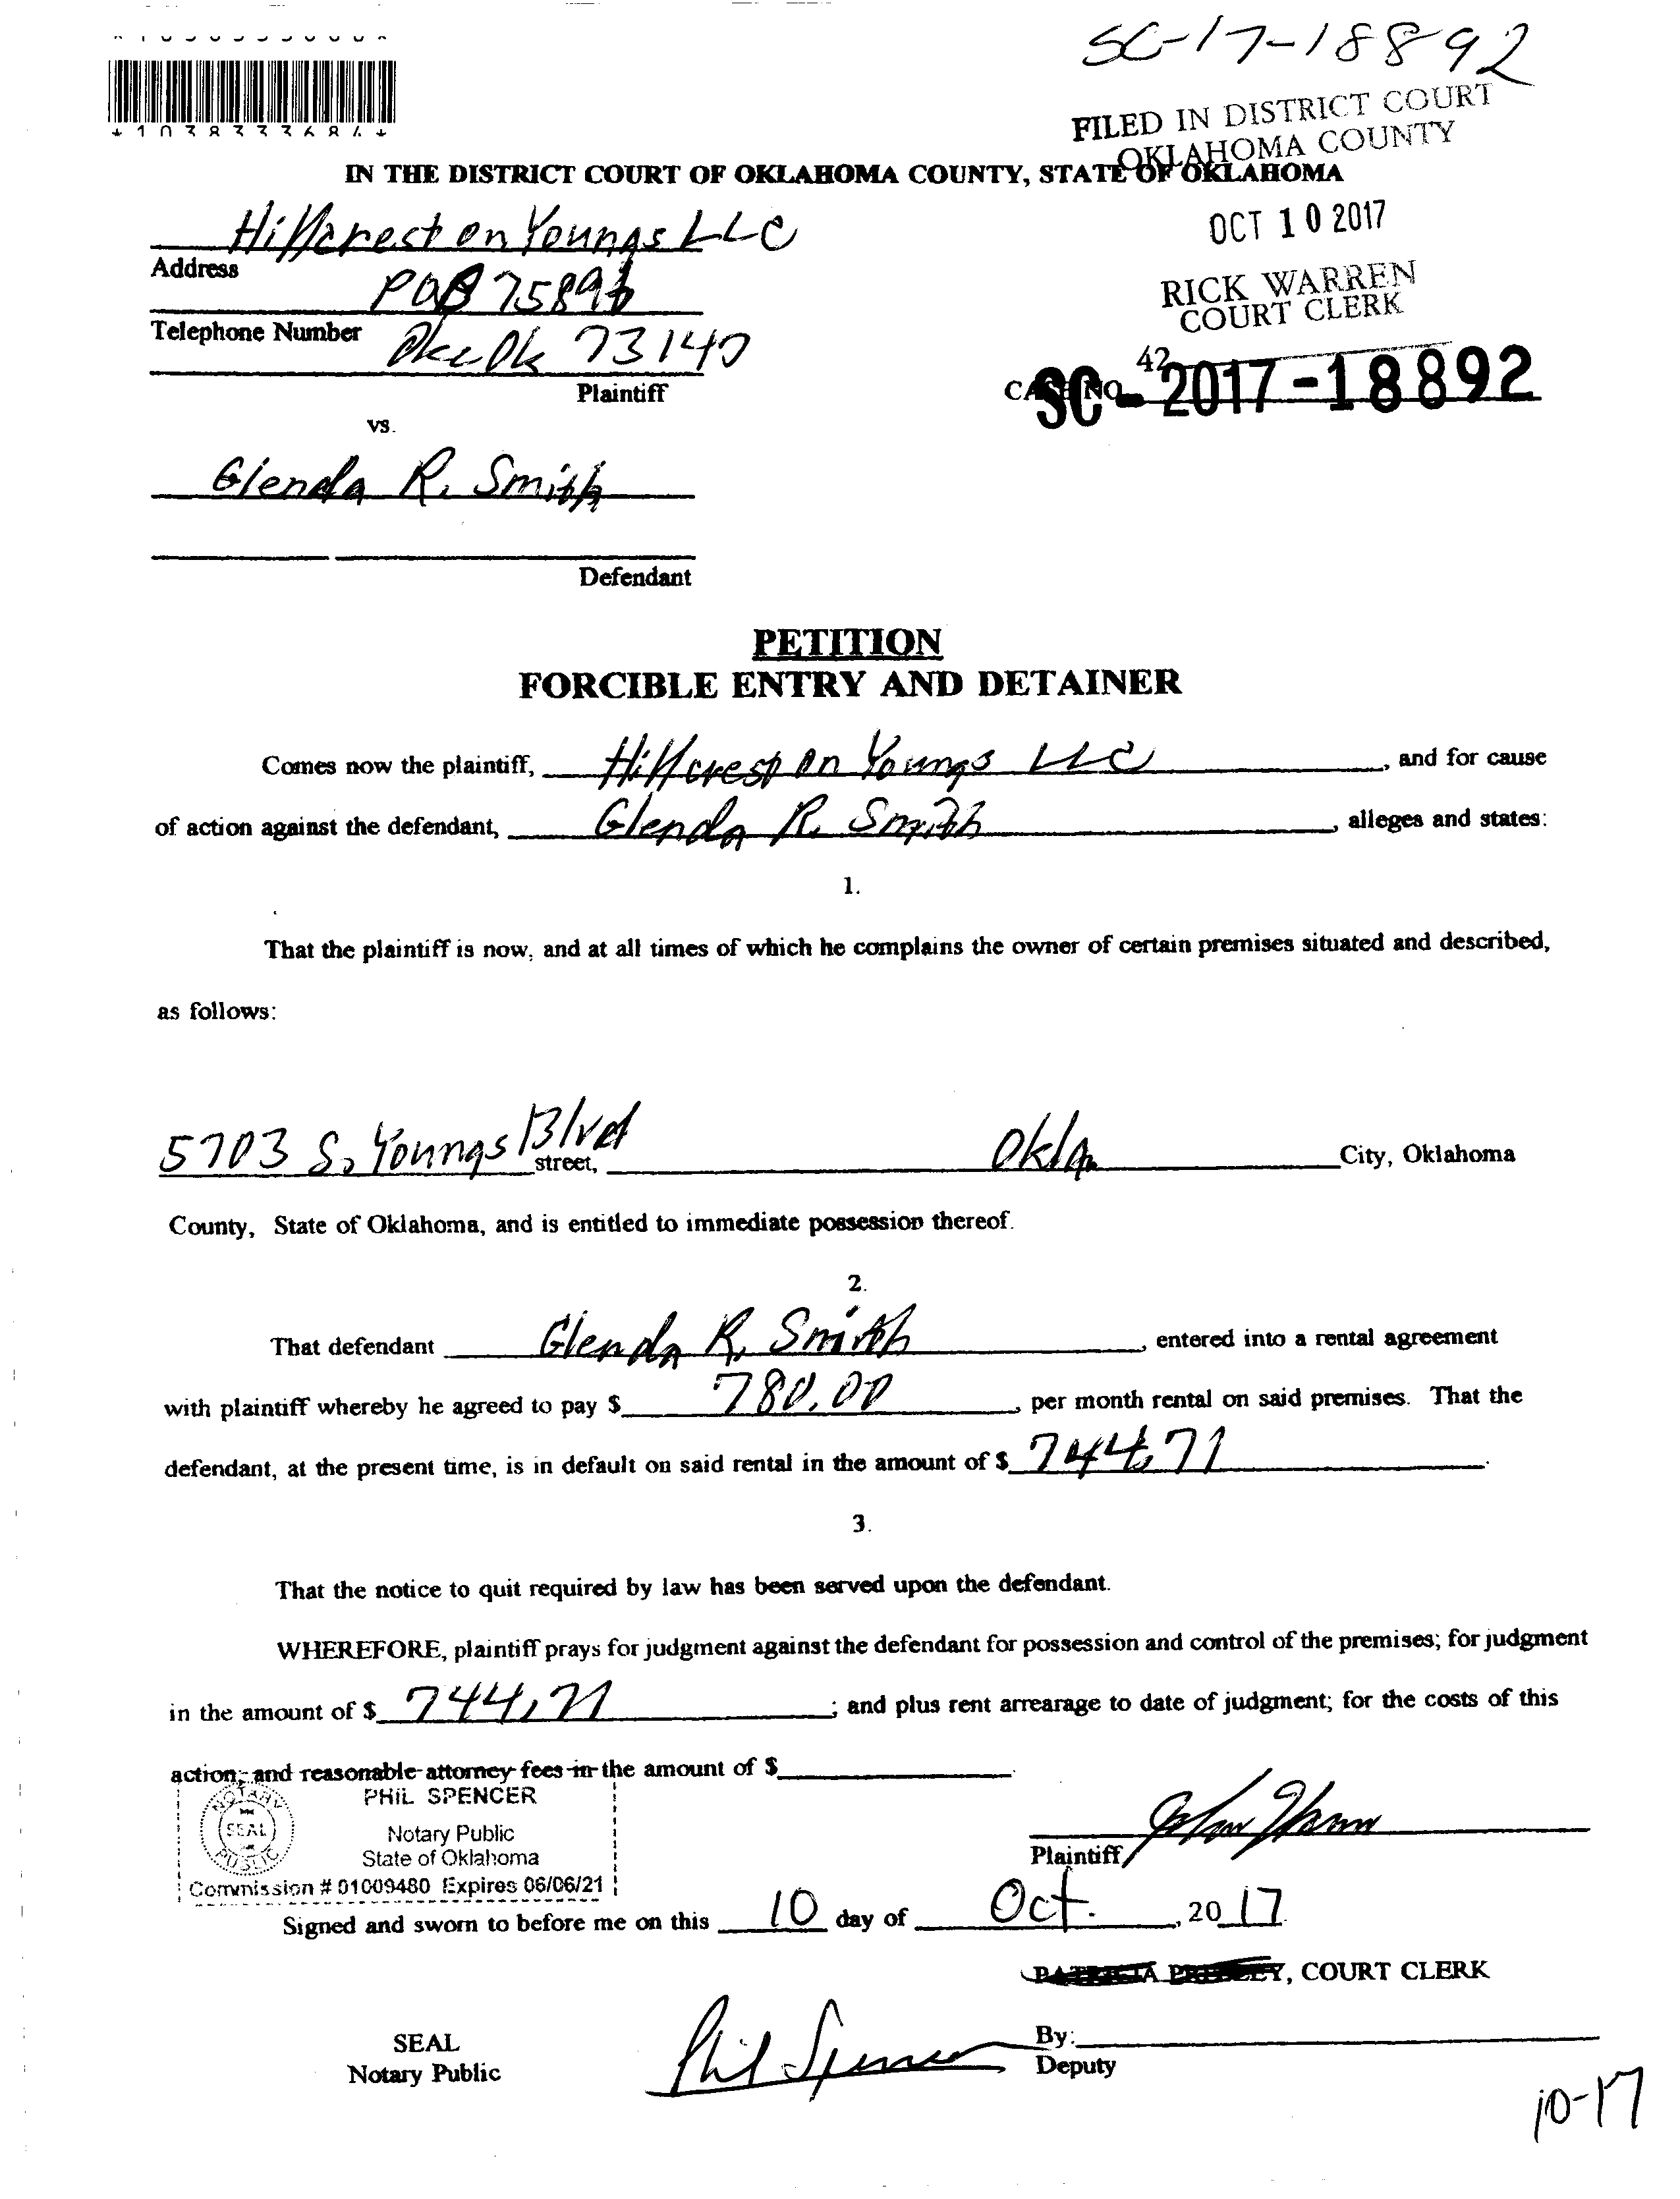 SC-17-18892
FILED IN DISTRICT COURT
OKLAHOMA COUNTY
IN THE DISTRICT COURT OF OKLAHOMA COUNTY, STATE OF OKLAHOMA
OCT 10 2017
RICK WARREN
COURT CLERK
42
Hillcrest on Youngs LLC
Address
POB
Telephone Number
Okc Ok
Plaintiff
CASE NO. SC-2017-18892
vs.
Glenda R. Smith
Defendant
PETITION
FORCIBLE ENTRY AND DETAINER
Comes now the plaintiff, Hillcrest on Youngs LLC, and for cause
of action against the defendant, Glenda R. Smith, alleges and states:
1.
That the plaintiff is now, and at all times of which he complains the owner of certain premises situated and described,
as follows:
5703 S. Youngs Blvd street, Okla City, Oklahoma
County, State of Oklahoma, and is entitled to immediate possession thereof.
2.
That defendant Glenda R. Smith, entered into a rental agreement
with plaintiff whereby he agreed to pay $ 780.00, per month rental on said premises. That the
defendant, at the present time, is in default on said rental in the amount of $ 744.71.
3.
That the notice to quit required by law has been served upon the defendant.
WHEREFORE, plaintiff prays for judgment against the defendant for possession and control of the premises; for judgment
in the amount of $ 744.71; and plus rent arrearage to date of judgment; for the costs of this
action; and reasonable attorney fees in the amount of $
NOTARY
SEAL
PUBLIC
PHIL SPENCER
Notary Public
State of Oklahoma
Commission # 01009480 Expires 06/06/21
Plaintiff
Signed and sworn to before me on this 10 day of Oct., 20 17.
PATRICIA PRESLEY, COURT CLERK
SEAL
Notary Public
Phil Spencer
By:
Deputy
10-17